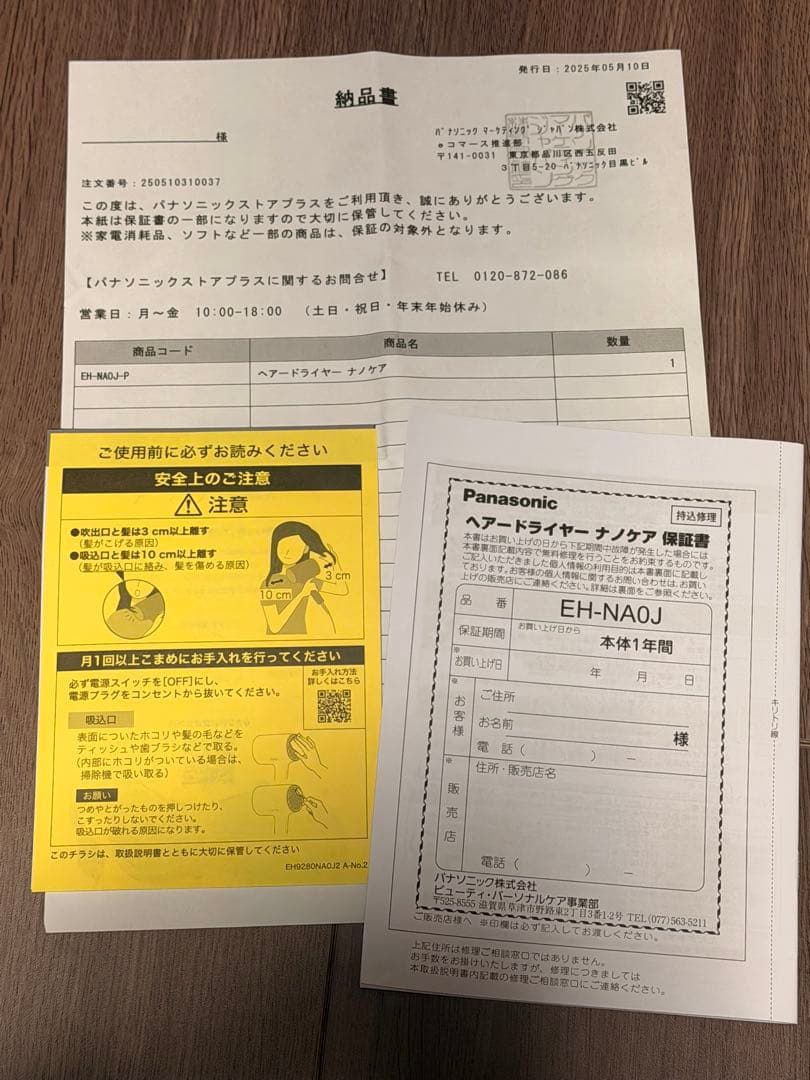 発行日：2025年05月10日
納品書
様
パナソニック マーケティング ジャパン株式会社
eコマース推進部
〒141-0031 東京都品川区西五反田
3丁目5-20 パナソニック目黒ビル
注文番号：250510310037
この度は、パナソニックストアプラスをご利用頂き、誠にありがとうございます。
本紙は保証書の一部になりますので大切に保管してください。
※家電消耗品、ソフトなど一部の商品は、保証の対象外となります。
【パナソニックストアプラスに関するお問合せ】 TEL 0120-872-086
営業日：月～金 10:00-18:00 （土日・祝日・年末年始休み）
商品コード 商品名 数量
EH-NA0J-P ヘアードライヤー ナノケア 1
ご使用前に必ずお読みください
安全上のご注意
注意
●吹出口と髪は3 cm以上離す
（髪がこげる原因）
●吸込口と髪は10 cm以上離す
（髪が吸込口に絡み、髪を傷める原因）
3 cm
10 cm
月1回以上こまめにお手入れを行ってください
必ず電源スイッチを[OFF]にし、
電源プラグをコンセントから抜いてください。
お手入れ方法
詳しくはこちら
吸込口
表面についたホコリや髪の毛などを
ティッシュや歯ブラシなどで取る。
（内部にホコリがついている場合は、
掃除機で吸い取る）
お願い
つめやとがったものを押しつけたり、
こすったりしないでください。
吸込口が破れる原因になります。
このチラシは、取扱説明書とともに大切に保管してください
EH9280NA0J2 A-No.2
Panasonic
持込修理
ヘアードライヤー ナノケア 保証書
本書はお買い上げの日から下記期間中故障が発生した場合には
本書裏面記載内容で無料修理を行うことをお約束するものです。
ご記入いただきました個人情報の利用目的は本書裏面に記載し
ております。お客様の個人情報に関するお問い合わせは、お買い
上げの販売店にご連絡ください。詳細は裏面をご参照ください。
品番 EH-NA0J
保証期間 お買い上げ日から 本体1年間
※お買い上げ日 年 月 日
※お客様
ご住所
お名前 様
電話（ ） －
※販売店
住所・販売店名
電話（ ） －
パナソニック株式会社
ビューティ・パーソナルケア事業部
〒525-8555 滋賀県草津市野路東2丁目3番1-2号 TEL (077)563-5211
ご販売店様へ ※印欄は必ず記入してお渡しください。
上記住所は修理ご相談窓口ではありません。
お手数をお掛けいたしますが、修理につきましては
本取扱説明書内記載の修理ご相談窓口にご連絡ください。
キリトリ線